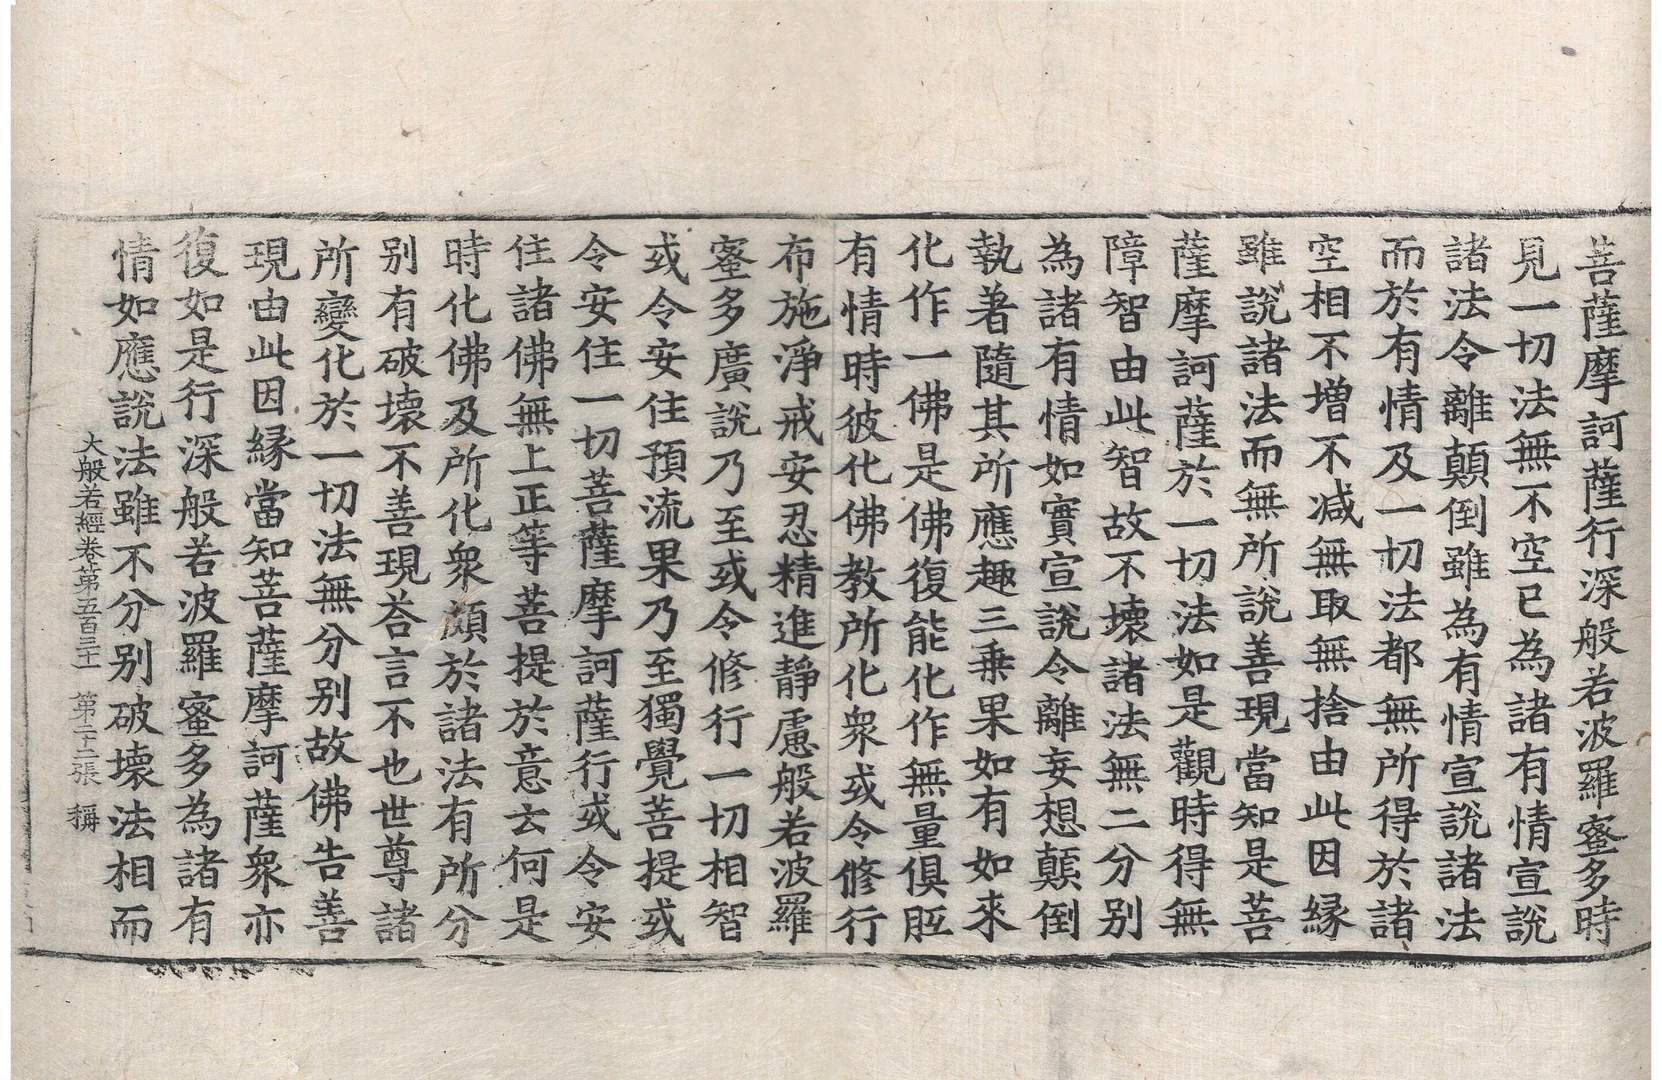 菩薩摩訶薩行深般若波羅蜜多時
見一切法無不空已為諸有情宣說
諸法令離顛倒雖為有情宣說諸法
而於有情及一切法都無所得於諸
空相不增不減無取無捨由此因緣
雖說諸法而無所說善現當知是菩
薩摩訶薩於一切法如是觀時得無
障智由此智故不壞諸法無二分別
為諸有情如實宣說令離妄想顛倒
執著隨其所應趣三乘果如有如來
化作一佛是佛復能化作無量俱胝
有情時彼化佛教所化衆或令修行
布施淨戒安忍精進靜慮般若波羅
蜜多廣說乃至或令修行一切相智
或令安住預流果乃至獨覺菩提或
令安住一切菩薩摩訶薩行或令安
住諸佛無上正等菩提於意云何是
時化佛及所化衆頗於諸法有所分
別有破壞不善現荅言不也世尊諸
所變化於一切法無分別故佛告善
現由此因緣當知菩薩摩訶薩衆亦
復如是行深般若波羅蜜多為諸有
情如應說法雖不分別破壞法相而
大般若經卷第五百三十 第二十二張 稱